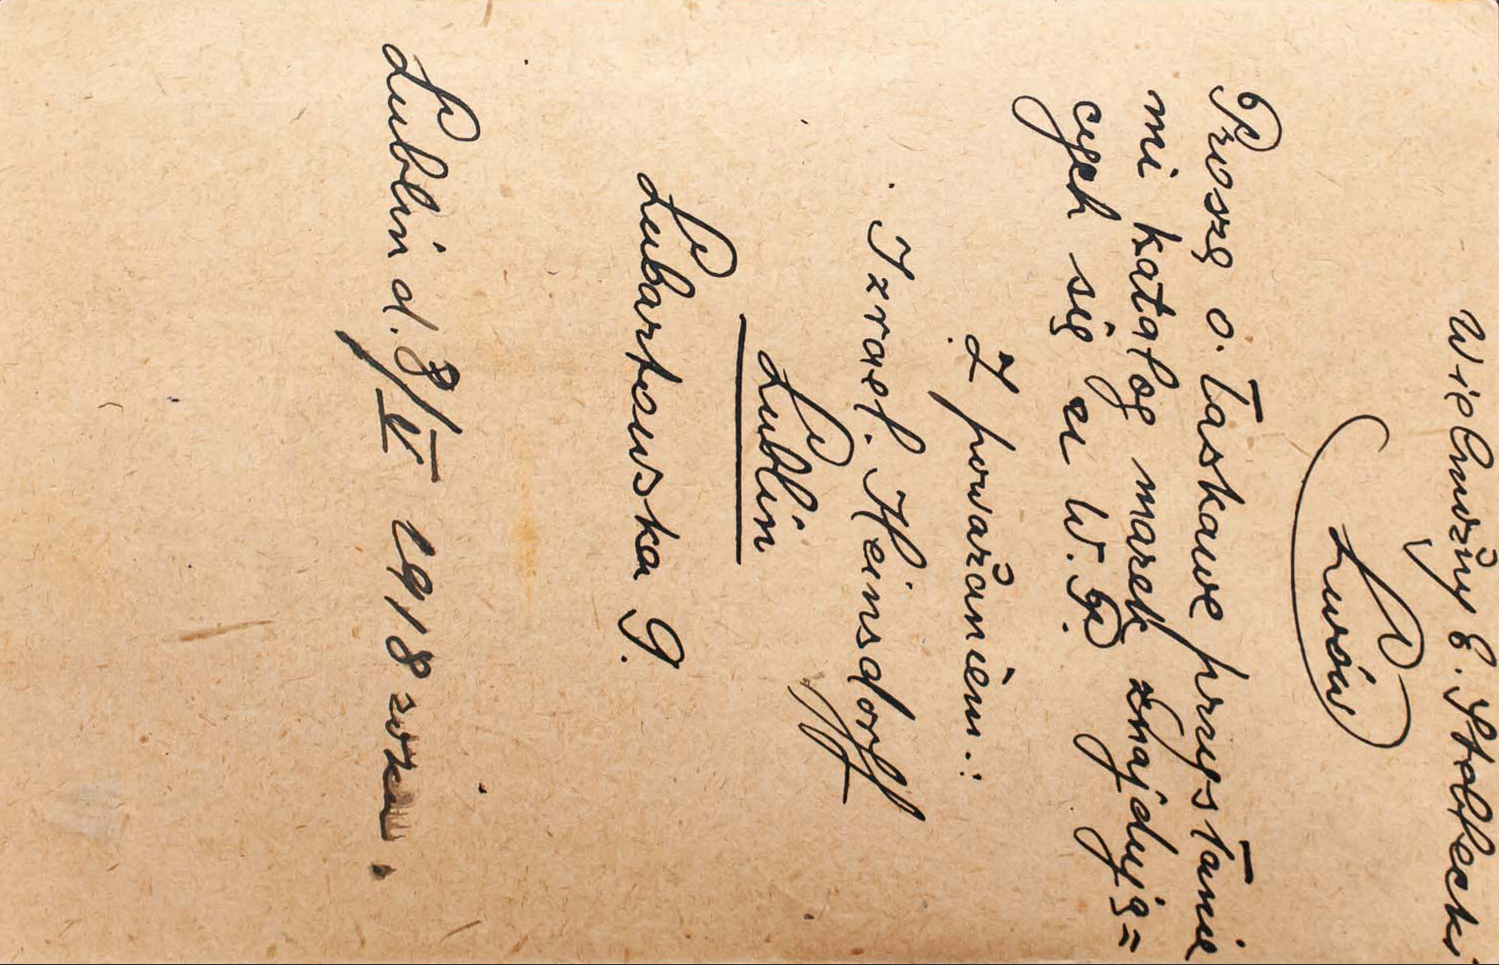 Wielmożny E. Stobiecki
Lwów
Proszę o. łaskawe przysłanie
mi katalog marek znajdują=
cych się u W. P.
Z poważaniem:
Izrael. Heinsdorff
Lublin
Lubartowska 9.
Lublin d. 8/V 1918 roku.